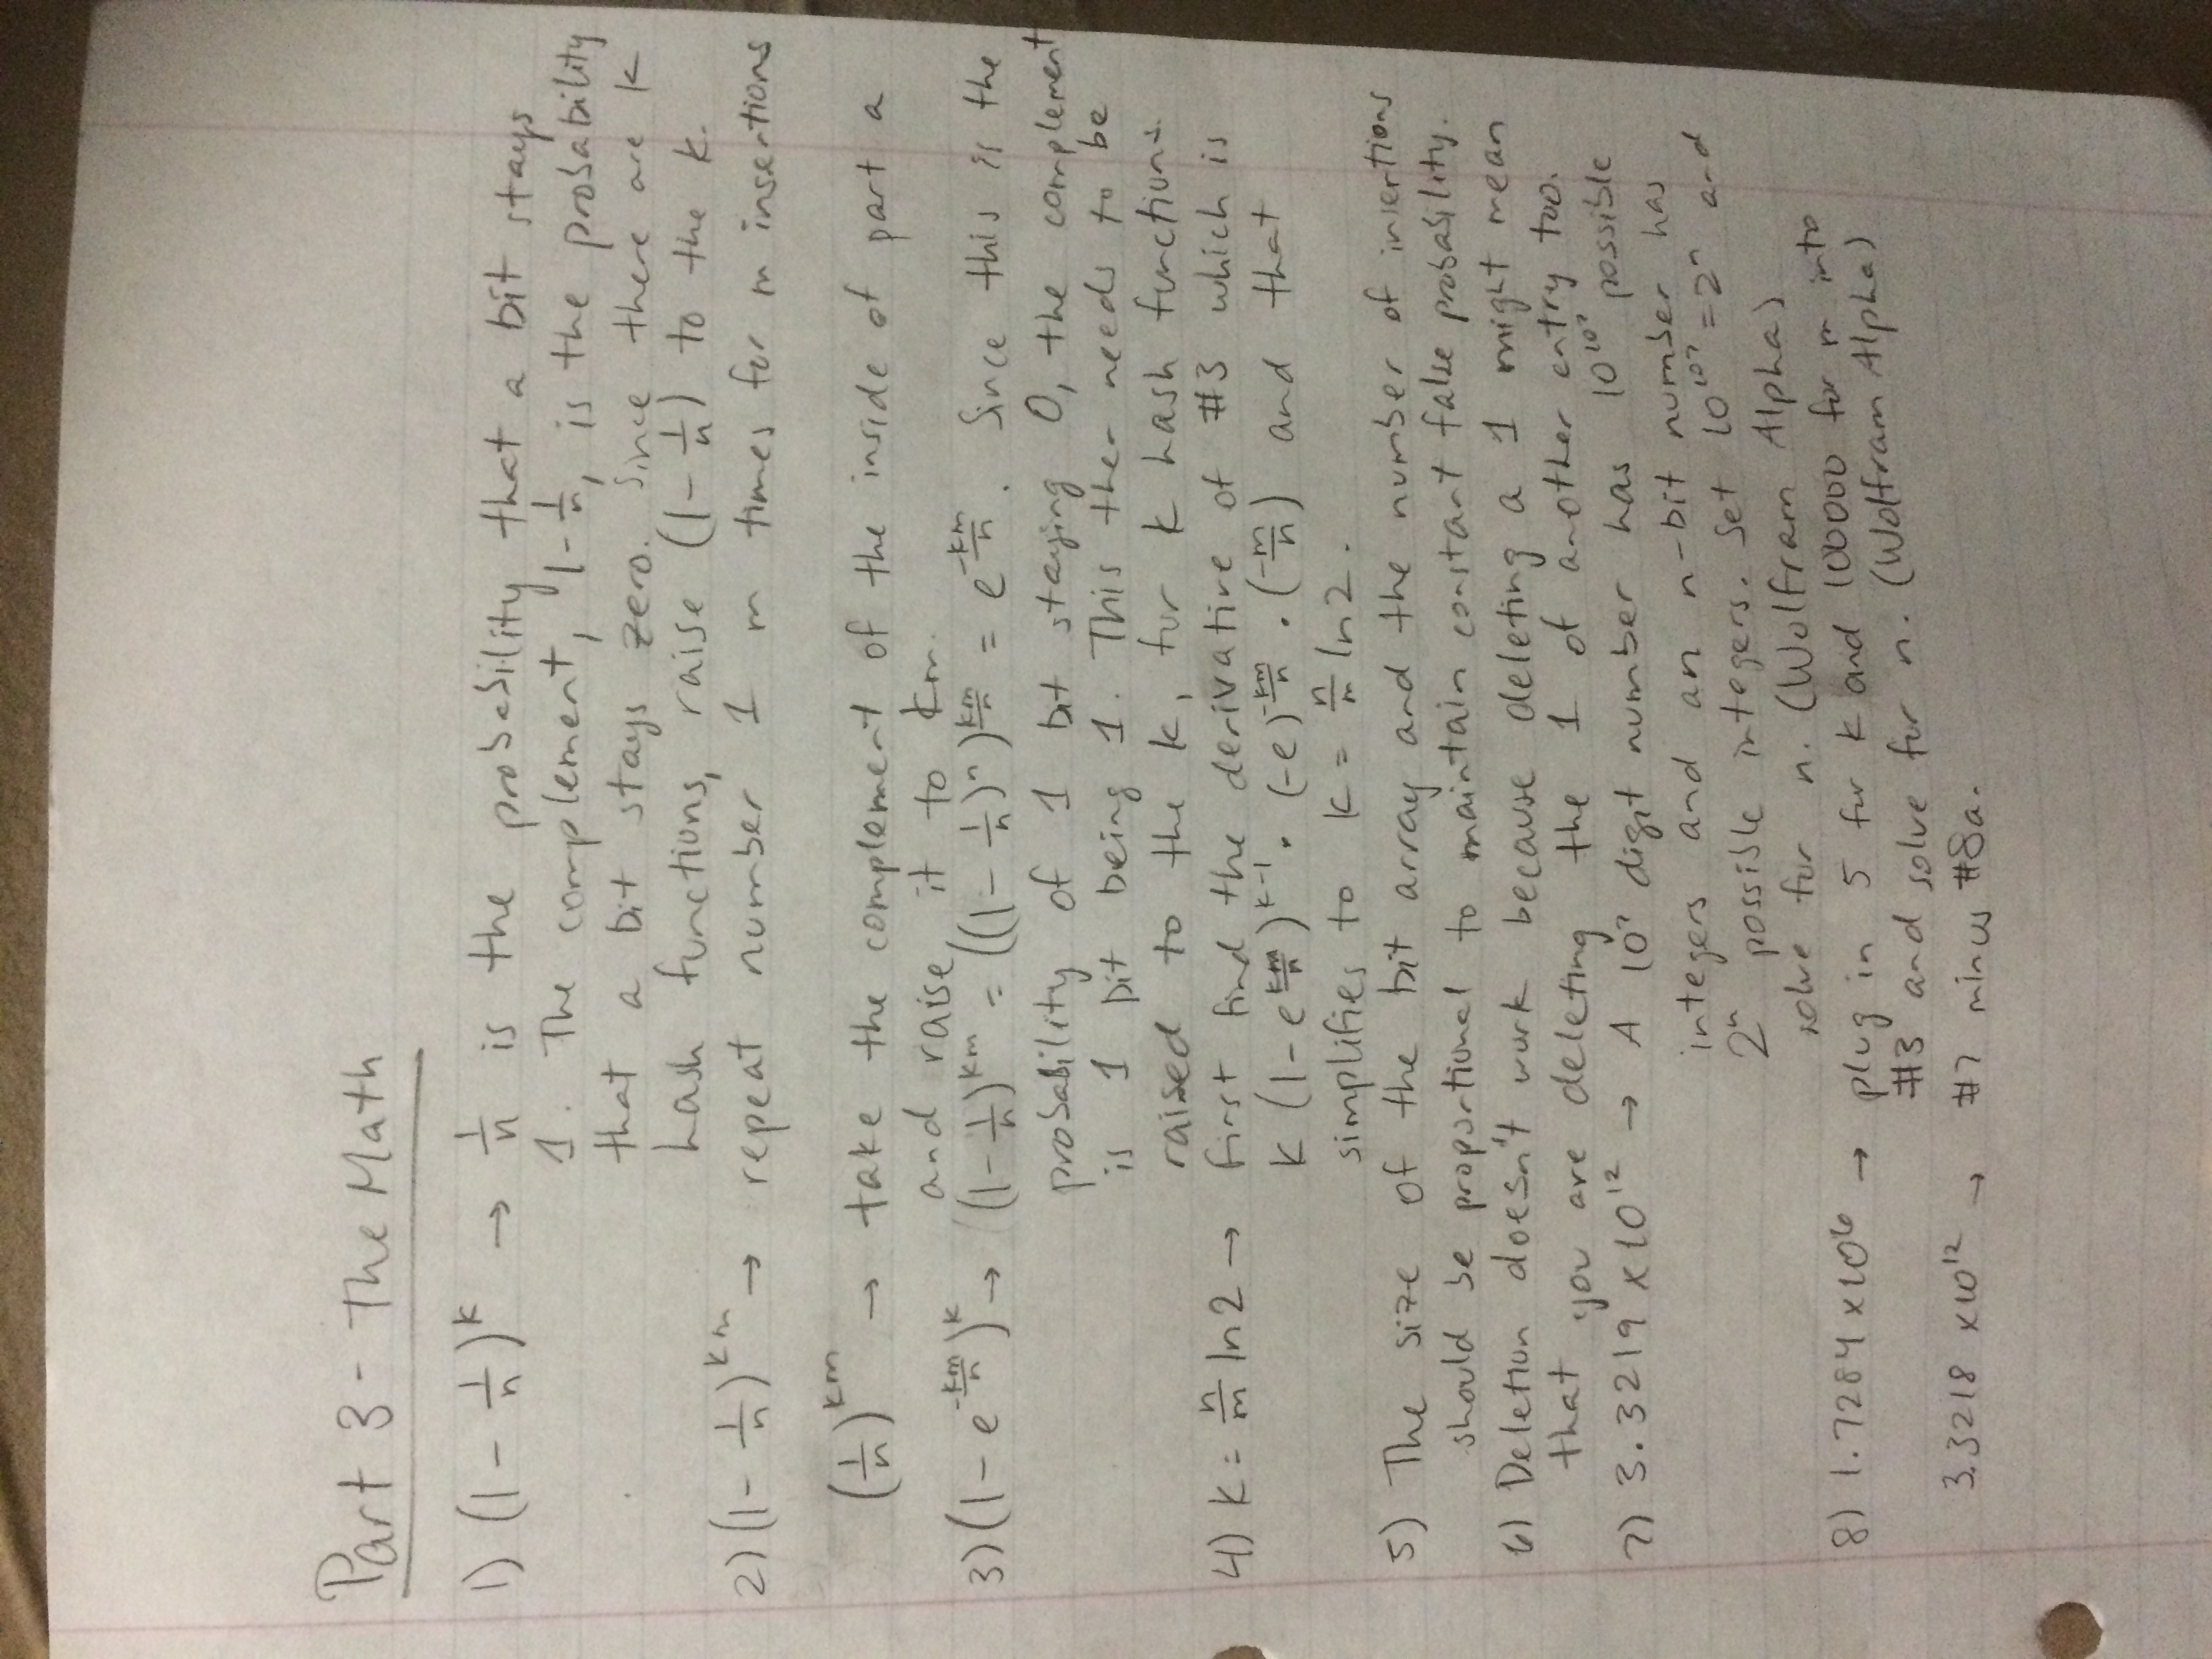 Part 3 - The Math
1) (1 - 1/n)^k → 1/n is the probability that a bit stays
1. The complement, 1-1/n, is the probability
that a bit stays zero. Since there are k
hash functions, raise (1-1/n) to the k.
2) (1- 1/n)^km → repeat number 1 m times for m insertions
(1/n)^km → take the complement of the inside of part a
and raise it to km.
3) (1-e^(-km/n))^k → (1-1/n)^km = ((1-1/n)^n)^(km/n) = e^(-km/n). Since this is the
probability of 1 bit staying 0, the complement
is 1 bit being 1. This then needs to be
raised to the k, for k hash functions.
4) k = n/m ln2 → first find the derivative of #3 which is
k (1-e^(km/n))^(k-1) · (-e)^(-km/n) · (-m/n) and that
simplifies to k = n/m ln2.
5) The size of the bit array and the number of insertions
should be proportional to maintain constant false probability.
6) Deletion doesn't work because deleting a 1 might mean
that you are deleting the 1 of another entry too.
7) 3.3219 x10^12 → A 10^7 digit number has 10^10^7 possible
integers and an n-bit number has
2^n possible integers. Set 10^10^7 = 2^n and
solve for n. (Wolfram Alpha)
8) 1.7284 x10^6 → plug in 5 for k and 100000 for m into
#3 and solve for n. (Wolfram Alpha)
3.3218 x10^12 → #7 minus #8a.